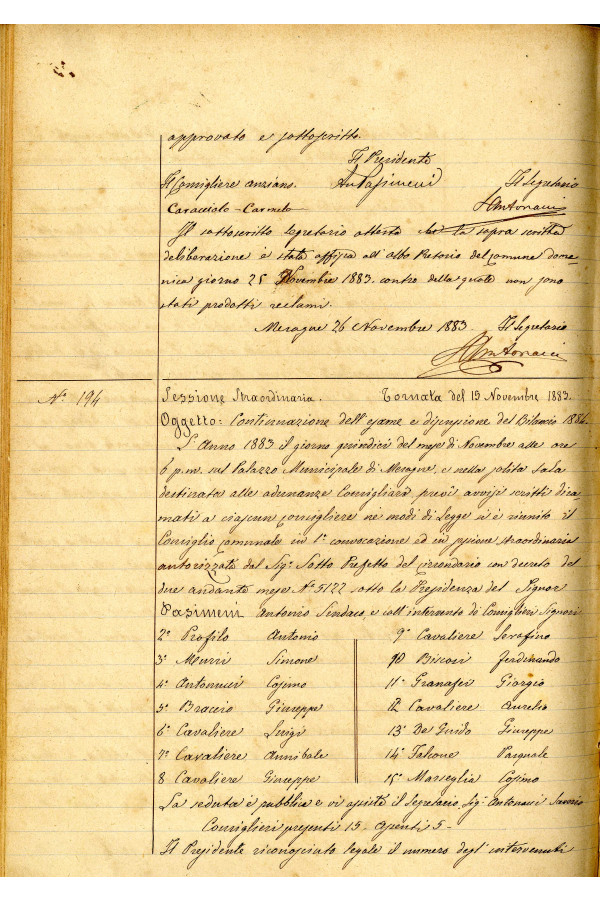 approvato e sottoscritto.
Il Presidente
Il Consigliere anziano. Ant Pasimeni Il Segretario
Caracciolo - Carmelo SAntonucci
Il sottoscritto Segretario attesta che la sopra scritta
deliberazione è stata affissa all'Albo Pretorio del comune dome-
nica giorno 25 Novembre 1883. contro della quale non sono
stati prodotti reclami.
Mesagne 26 Novembre 1883. Il Segretario
SAntonucci
N.° 194
Sessione Straordinaria. Tornata del 15 Novembre 1883.
Oggetto: Continuazione dell'esame e discussione del Bilancio 1884.
L'Anno 1883 il giorno quindici del mese di Novembre alle ore
6 p.m. sul Palazzo Municipale di Mesagne, e nella solita Sala
destinata alle adunanze Consigliari, previ avvisi scritti dira-
mati a ciascun Consigliere nei modi di Legge si è riunito il
Consiglio comunale in 1.a convocazione ed in sessione straordinaria
autorizzata dal Sig.r Sotto Prefetto del circondario con decreto del
due andante mese N.° 5122 sotto la Presidenza del Signor
Pasimeni Antonio Sindaco, e coll'intervento di Consiglieri Signori
2° Profilo Antonio 9° Cavaliere Serafino
3° Murri Simone 10 Biscosi Ferdinando
4° Antonucci Cosimo 11° Granafei Giorgio
5° Braccio Giuseppe 12 Cavaliere Aurelio
6° Cavaliere Luigi 13° De Guido Giuseppe
7° Cavaliere Annibale 14° Falcone Pasquale
8 Cavaliere Giuseppe 15° Marseglia Cosimo
La seduta è pubblica e vi assiste il Segretario, Sig.r Antonucci Saverio
Consiglieri presenti 15 - Assenti 5 -
Il Presidente riconosciuto legale il numero degl'intervenuti